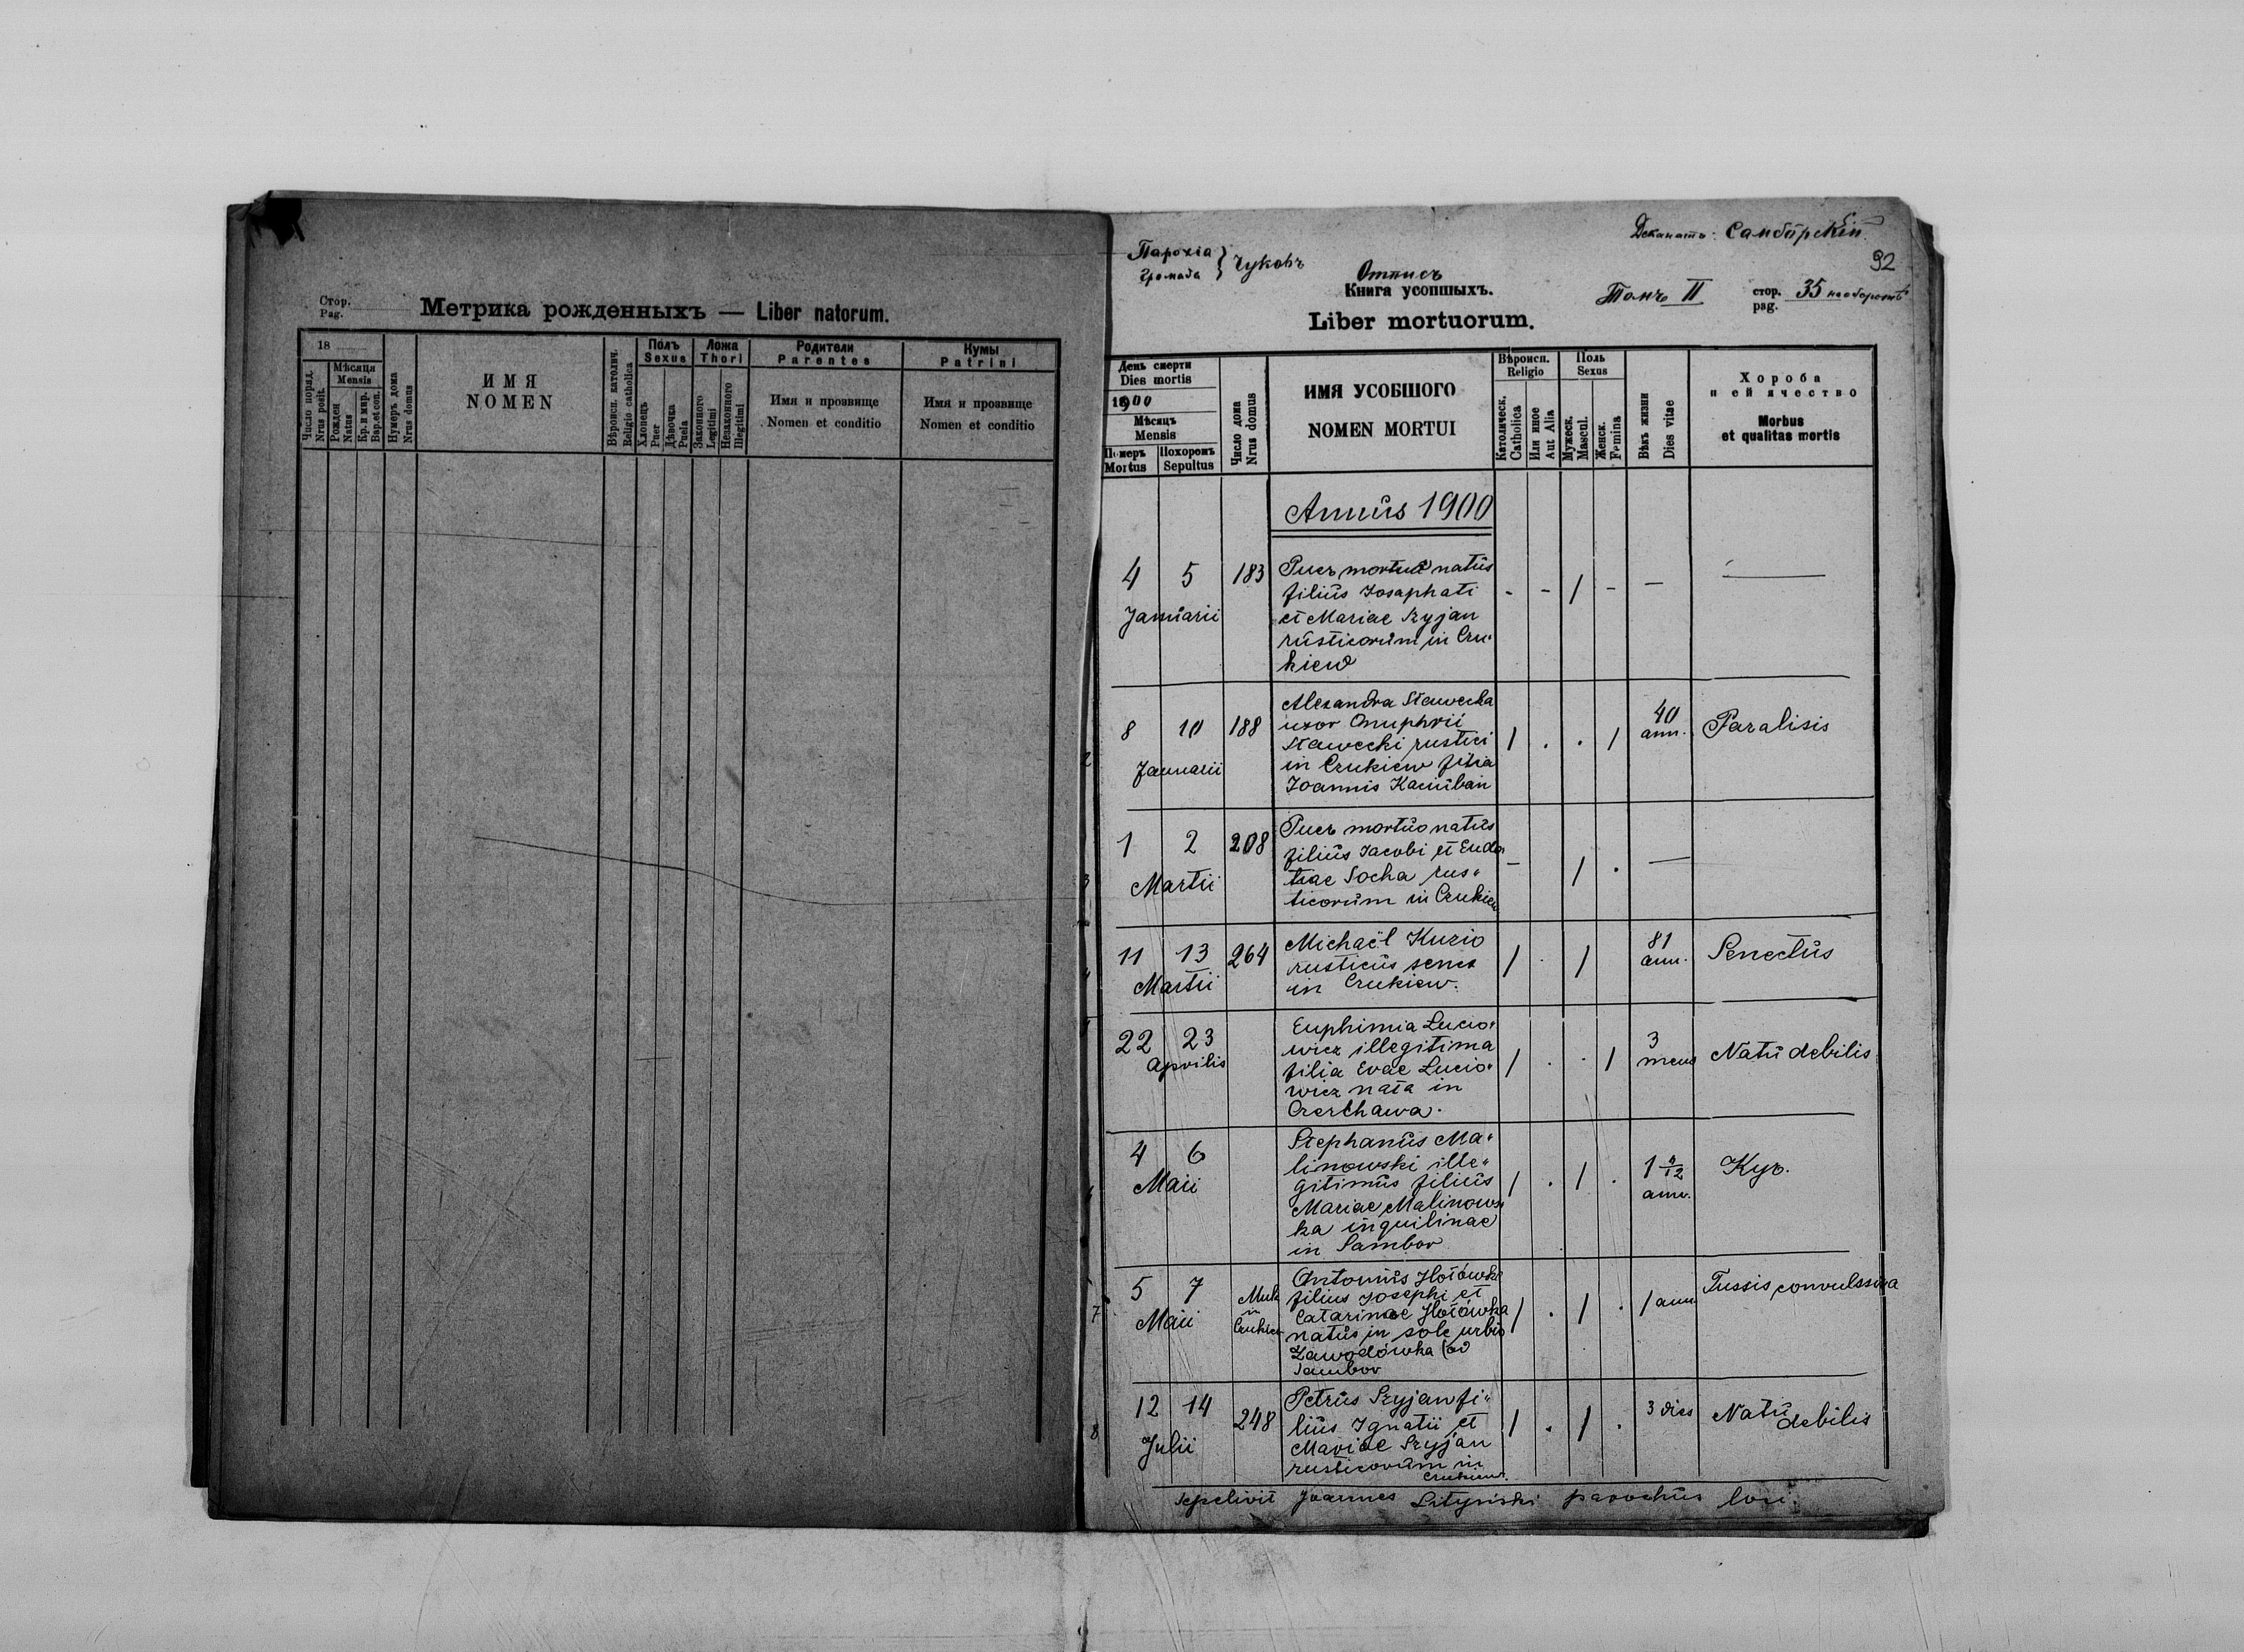 Стор.
Pag.
Метрика рожденныхъ — Liber natorum.
18
Число поряд.
Nrus posit.
Мѣсяця
Mensis
Рожден
Natus
Кр. и мир.
Bap. et con.
Нумеръ дома
Nrus domus
ИМЯ
NOMEN
Вѣроисп. католич.
Religio catholica
Полъ
Sexus
Хлопецъ
Puer
Дѣвочка
Puela
Ложа
Thori
Законного
Legitimi
Незаконного
Illegitimi
Родители
Parentes
Имя и прозвище
Nomen et conditio
Кумы
Patrini
Имя и прозвище
Nomen et conditio
Деканатъ: Самбôрскій
92
Парохія
Громада } Чуковъ
Отпись
Книга усопшыхъ.
Томъ II
стор.
pag. 35 на оборотѣ
Liber mortuorum.
День смерти
Dies mortis
1900
Мѣсяцъ
Mensis
Померъ
Mortus
Похоронъ
Sepultus
Число дома
Nrus domus
ИМЯ УСОБШОГО
NOMEN MORTUI
Вѣроисп.
Religio
Католическ.
Catholica
Или иное
Aut Alia
Поль
Sexus
Мужеск.
Mascul.
Женск.
Femina
Вѣкъ жизни
Dies vitae
Хороба
и ей ячество
Morbus
et qualitas mortis
Annus 1900
4 5 183 Puer mortuo natus - - / - —
filius Josaphati
Januarii
et Mariae Szyjan
rusticorum in Czu-
kiew
2 8 10 188 Alexandra Stawecka / . . / 40 ann. Paralisis
uxor Onuphrii
Stawecki rustici
Januarii
in Czukiew filia
Joannis Kaciuban
3 1 2 208 Puer mortuo natus - / . —
filius Jacobi et Eudo-
Martii
kiae Socha rus-
ticorum in Czukiew
4 11 13 264 Michaël Kuzio / . / 81 ann. Senectus
rusticus senex
Martii
in Czukiew.
22 23 Euphimia Lucio- / . . / 3 mens Natu debilis
Aprilis
wicz illegitima
filia Evae Lucio-
wicz nata in
Czerchawa.
4 6 Stephanus Ma- / . / . 1 ann. Kyr.
linowski ille-
Maii
gitimus filius
Mariae Malinows-
ka inquilinae
in Sambor
7 5 7 in Czukiew Antonius Hołówka / . / . 1 ann Tussis convulssiva
filius Josephi et
Maii
Catarinae Hołówka
natus in sole urbis
Zawodówka
Sambor
8 12 14 248 Petrus Szyjan fi- / . / . 3 dies Natu debilis
lius Ignatii et
Julii
Mariae Szyjan
rusticorum in
Czukiew.
sepelivit Joannes Lityński parochus loci.